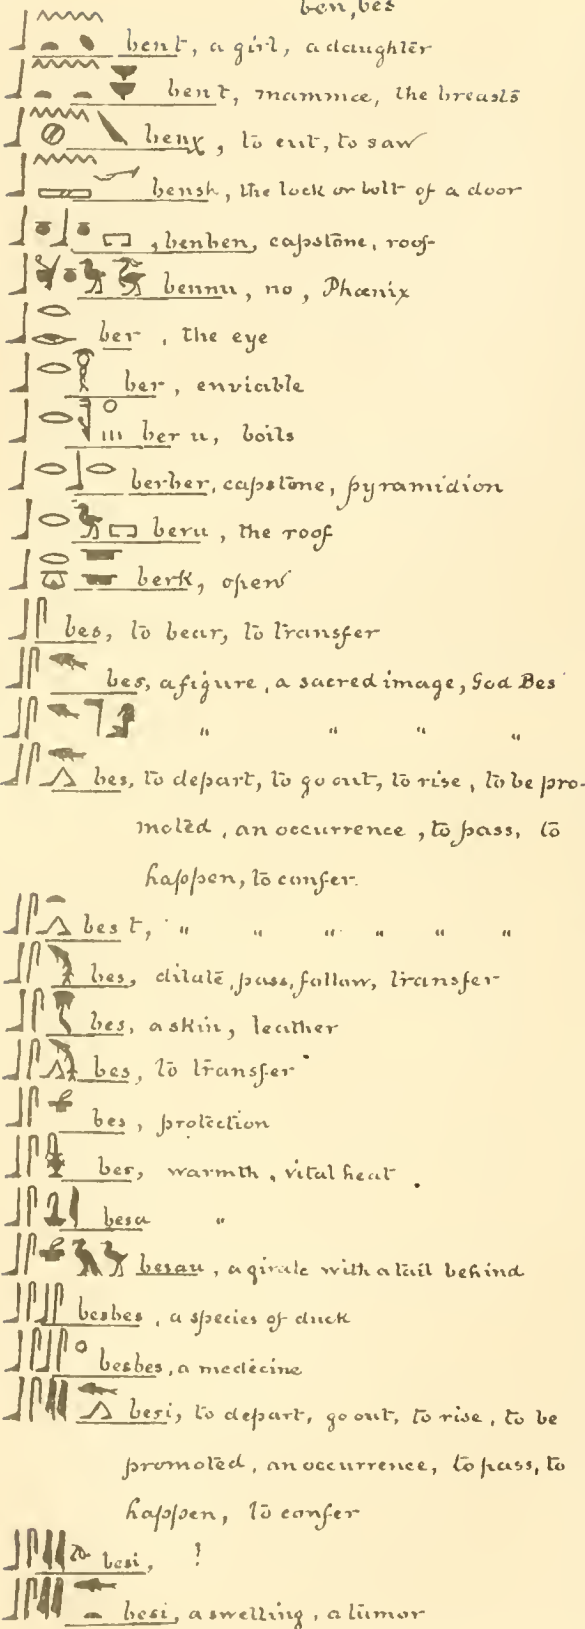 ben, bes
bent, a girl, a daughter
bent, mammæ, the breasts
benχ, to cut, to saw
bensh, the lock or bolt of a door
, benben, capstone, roof
bennu, no, Phœnix
ber, the eye
ber, enviable
ber u, boils
berber, capstone, pyramidion
beru, the roof
berk, open
bes, to bear, to transfer
bes, a figure, a sacred image, God Bes
" " " "
bes, to depart, to go out, to rise, to be pro-
moted, an occurrence, to pass, to
happen, to confer.
bes t, " " " " " "
bes, dilute, pass, follow, transfer
bes, a skin, leather
bes, to transfer
bes, protection
bes, warmth, vital heat.
besa "
besau, a girdle with a tail behind
besbes, a species of duck
besbes, a medecine
besi, to depart, go out, to rise, to be
promoted, an occurrence, to pass, to
happen, to confer
besi, ?
besi, a swelling, a tumor